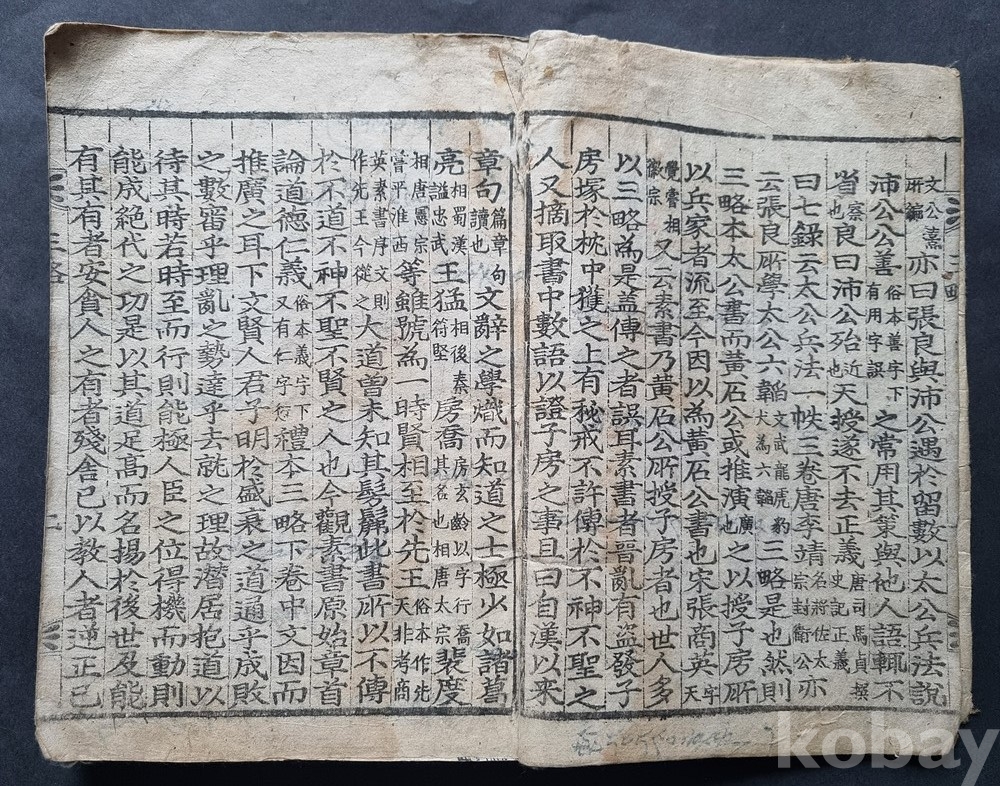 文公薰所編亦曰張良與沛公遇於留數以太公兵法說
沛公公善俗本善字下有用字誤之常用其策與他人語輒不
省察也良曰沛公殆近也天授遂不去正義唐司馬貞撰史記正義
曰七錄云太公兵法一帙三卷唐李靖名將佐太宗封衛公亦
云張良所學太公六韜文武龍虎豹犬為六韜三略是也然則
三略本太公書而黃石公或推演廣也之以授子房所
以兵家者流至今因以為黃石公書也宋張商英字天
覺嘗相徽宗又云素書乃黃石公所授子房者也世人多
以三略為是盖傳之者誤耳素書者晉亂有盗發子
房塚於枕中獲之上有秘戒不許傳於不神不聖之
人又摘取書中數語以證子房之事且曰自漢以來
章句篇章句讀也文辭之學熾而知道之士極少如諸葛
亮相蜀漢謚忠武王猛相後秦苻堅房喬房玄齡以字行喬其名也相唐太宗裴度
相唐憲宗嘗平淮西等雖號為一時賢相至於先王俗本作先天非者商
英素書序文則作先王今從之大道曾未知其髣髴此書所以不傳
於不道不神不聖不賢之人也今觀素書原始章首
論道德仁義俗本義字下又有仁字衍禮本三略下卷中文因而
推廣之耳下文賢人君子明於盛衰之道通乎成敗
之數審乎理亂之勢達乎去就之理故潛居抱道以
待其時若時至而行則能極人臣之位得機而動則
能成絕代之功是以其道足高而名揚於後世及能
有其有者安貪人之有者殘舍已以教人者逆正已
三略 二
kobay